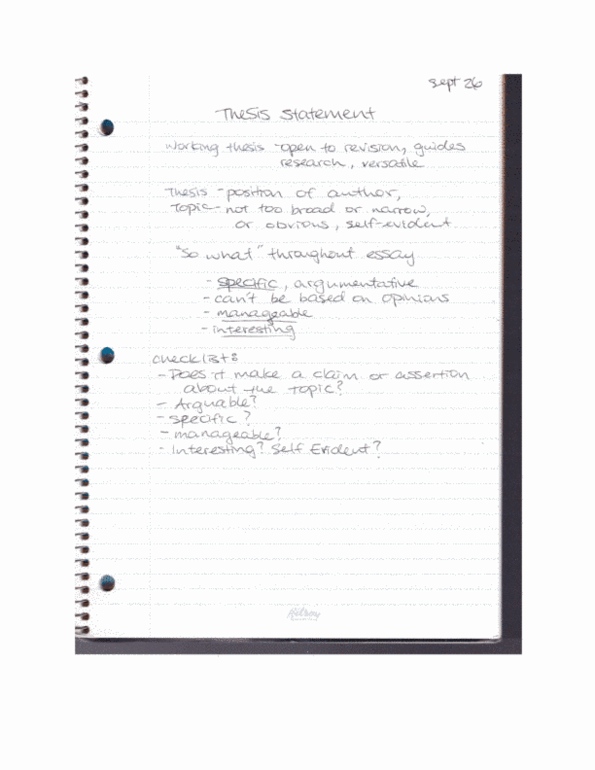 Sept 26
Thesis Statement
Working thesis - open to revision, guides
research, versatile
Thesis - position of author,
Topic - not too broad or narrow,
or obvious, self-evident
"So what" throughout essay
- specific, argumentative
- can't be based on opinions
- manageable
- interesting
Checklist:
- Does it make a claim or assertion
about the topic?
- Arguable?
- specific?
- manageable?
- Interesting? Self Evident?
Hilroy